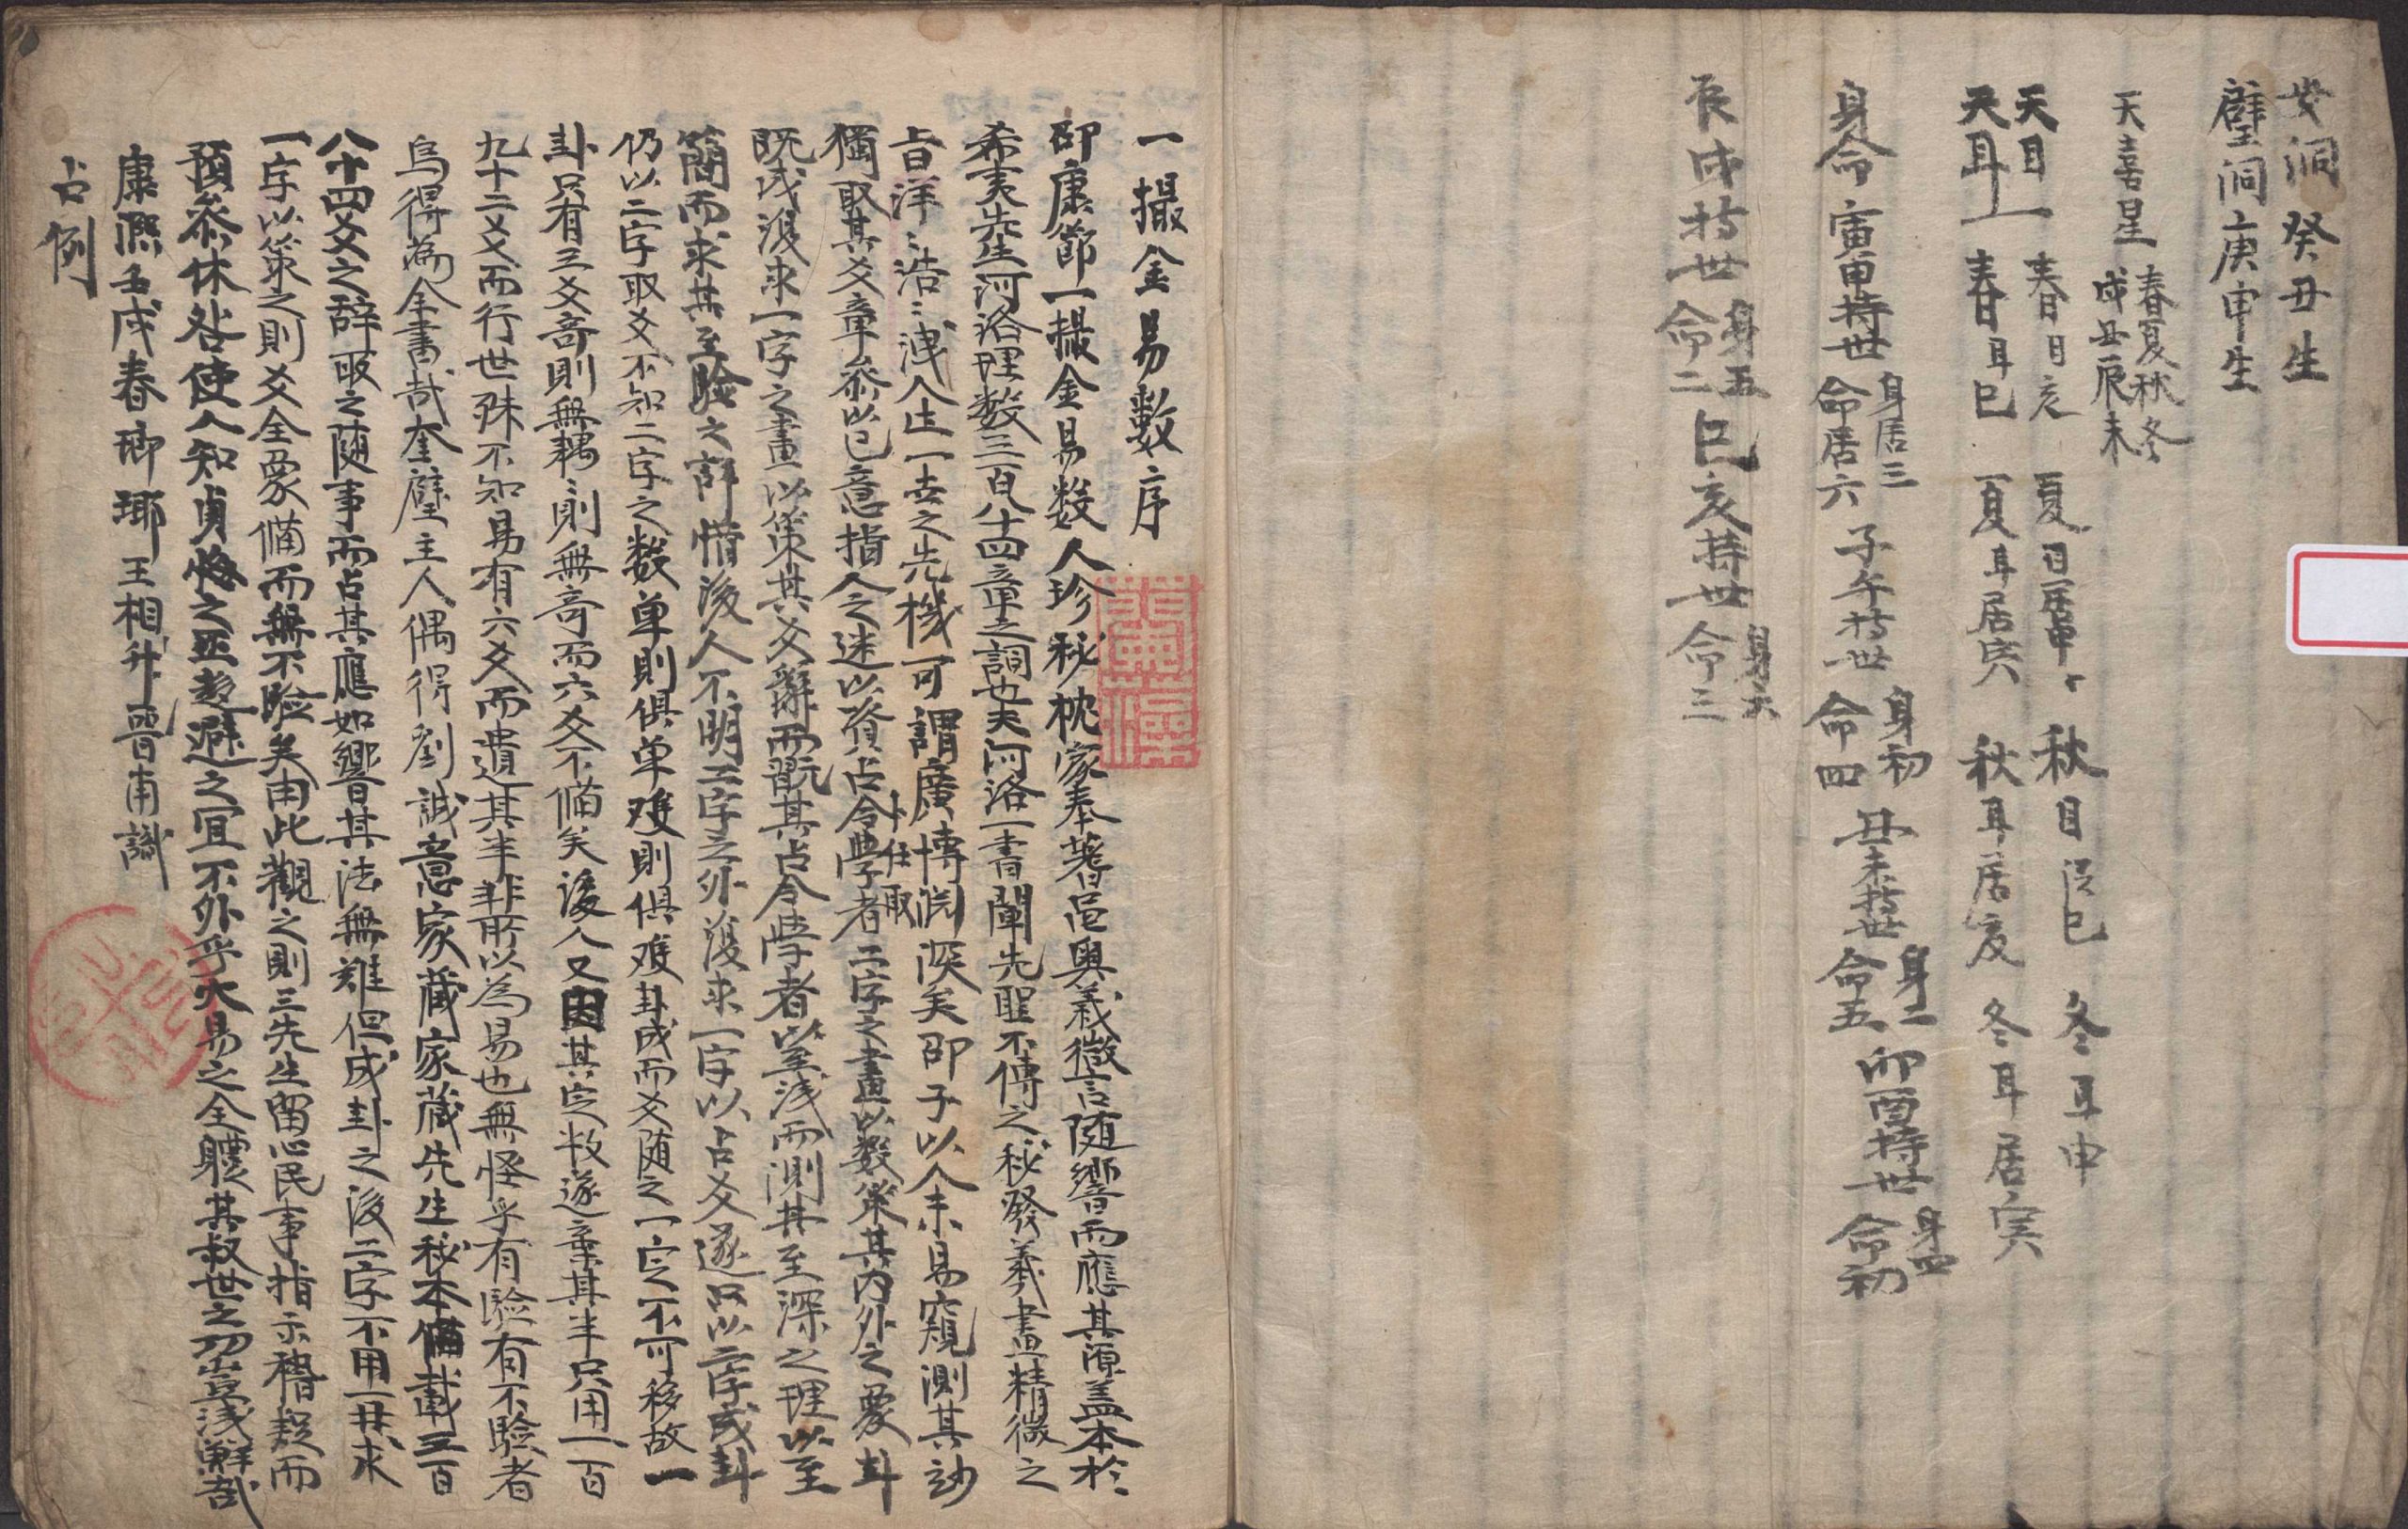 女洞癸丑生
壁洞庚申生
天喜星 春夏秋冬 戌丑辰未
天目 春目亥 夏目居申 秋目巳 冬耳申
天耳 春耳巳 夏耳居寅 秋耳居亥 冬耳居寅
身命 寅申持世 身居三 命居六 子午持世 身初 命四 丑未持世 身二 命五 卯酉持世 身四 命初
辰戌持世 身五 命二 巳亥持世 身六 命三
一撮金易數序
邵康節一撮金易数人珍秘枕家奉蓍龜奧義微言随響而應其源盖本於
希夷先生河洛理数三百八十四章之詞也夫河洛一書闡先聖不傳之秘發羲畫精微之
旨洋〻浩〻洩人生一去之先機可謂廣博渕深矣邵子以人未易窺測其玅
獨取其爻章叅以已意指人之迷以資占卜令學者任取二字之畫以数策其内外之象卦
既成復求一字之畫以策其爻辭而翫其占令學者以至浅而測其至深之理以至
簡而求其至驗之辞惜後人不明二字之外復求一字以占爻遂只以二字成卦
仍以二字取爻不知二字之数单則俱单雙則俱雙卦成而爻随之一定不可移故一
卦只有三爻奇則無耦〻則無奇而六爻不備矣後人又因其定数遂棄其半只用一百
九十二爻而行世殊不知易有六爻而遺其半非所以為易也無怪乎有驗有不驗者
烏得為全書哉奎壁主人偶得劉誠意家藏家藏先生秘本備載三百
八十四爻之辞取之随事而占其應如響其法無難但成卦之後二字不用一其求
一字以策之則爻全象備而無不驗矣由此觀之則三先生留心民事指示稽疑而
預叅休咎使人知貞悔之趋避之宜不外乎大易之全軆其救世之功豈浅鮮哉
康熈壬戌春瑯琊王相升晋甫識
占例